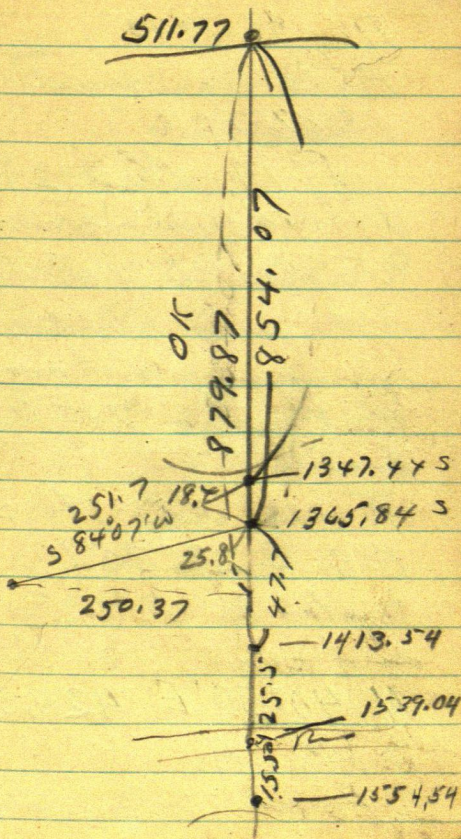 511.77
OK
879.87
854.07
1347.44 S
18.4
1365.84 S
251.7
S 84°07' W
25.8
250.37
47.7
1413.54
125.5
1539.04
15.50
1554.54